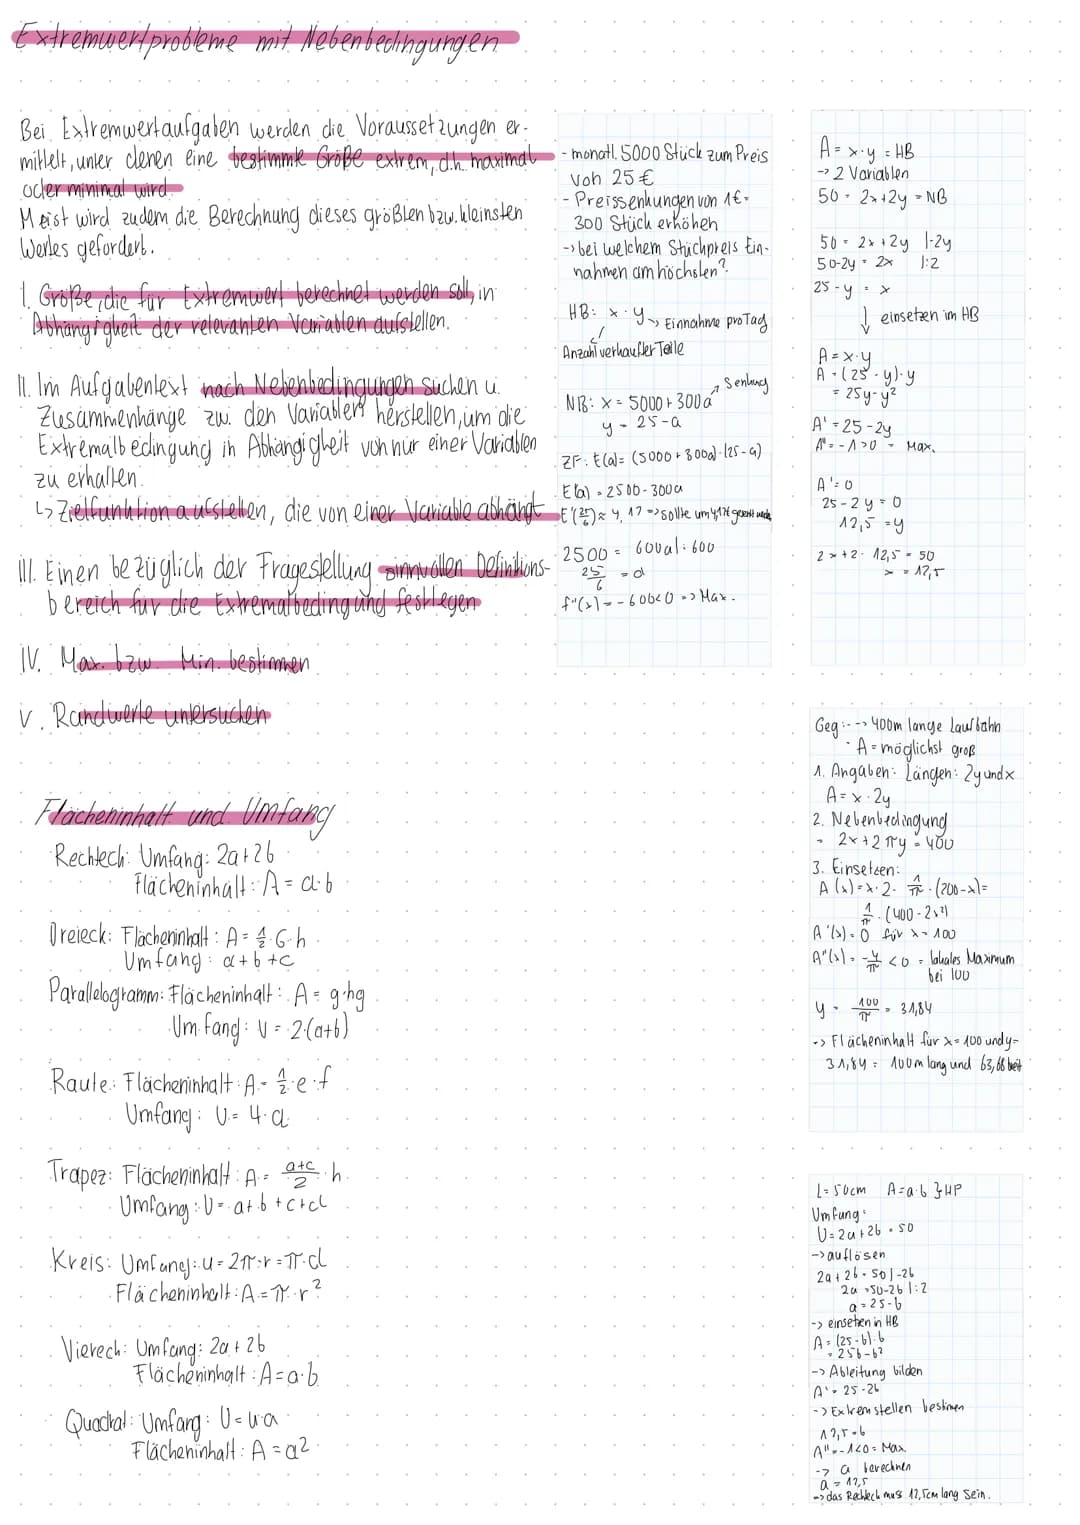 Extremwertprobleme mit Nebenbedingungen
Bei Extremwertaufgaben werden die Voraussetzungen er-
mittelt, unter denen eine bestimmte Größe extrem, d.h. maximal
oder minimal wird.
Meist wird zudem die Berechnung dieses größten bzw. kleinsten
Wertes gefordert.
I. Größe, die für Extremwert berechnet werden soll, in
Abhängigkeit der relevanten Variablen aufstellen.
II. Im Aufgabentext nach Nebenbedingungen suchen u.
Zusammenhänge zw. den Variablen herstellen, um die
Extremalbedingung in Abhängigkeit von nur einer Variablen
zu erhalten.
↳ Zielfunktion aufstellen, die von einer Variable abhängt
III. Einen bezüglich der Fragestellung sinnvollen Definitions-
bereich für die Extremalbedingung festlegen
IV. Max. bzw. Min. bestimmen
V. Randwerte untersuchen
Flächeninhalt und Umfang
Rechteck: Umfang: 2a+2b
Flächeninhalt: A = a·b
Dreieck: Flächeninhalt: A = 1/2·G·h
Umfang: a+b+c
Parallelogramm: Flächeninhalt: A = g·hg
Umfang: U = 2·(a+b)
Raute: Flächeninhalt: A = 1/2·e·f
Umfang: U = 4·a
Trapez: Flächeninhalt: A = a+c/2 · h
Umfang: U = a+b+c+d
Kreis: Umfang: u = 2π·r = π·d
Flächeninhalt: A = π·r²
Viereck: Umfang: 2a+2b
Flächeninhalt: A = a·b
Quadrat: Umfang: U = 4·a
Flächeninhalt: A = a²
- monatl. 5000 Stück zum Preis
von 25 €
- Preissenkungen von 1€ =
300 Stück erhöhen
-> bei welchem Stückpreis Ein-
nahmen am höchsten?
HB: x · y -> Einnahme pro Tag
Anzahl verkaufter Teile
Senkung
NB: x = 5000 + 300a
y = 25-a
ZF: E(a) = (5000 + 300a)·(25-a)
E(a) = 2500-300a
E'(25/6) ≈ 4,17 => sollte um 4,17€ gesenkt werden
2500 = 600a |:600
25/6 = a
f''(x) = -600<0 => Max.
A = x·y = HB
-> 2 Variablen
50 = 2x+2y = NB
50 = 2x+2y |-2y
50-2y = 2x |:2
25-y = x
↓ einsetzen im HB
A = x·y
A = (25-y)·y
= 25y-y²
A' = 25-2y
A'' = -1>0 = Max.
A' = 0
25-2y = 0
12,5 = y
2x+2· 12,5 = 50
x = 12,5
Geg.: -> 400m lange Laufbahn
· A = möglichst groß
1. Angaben: Längen: 2y und x
A = x·2y
2. Nebenbedingung
- 2x+2πy = 400
3. Einsetzen:
A(x) = x·2· 1/π ·(200-x) =
1/π ·(400-2x²)
A'(x) = 0 für x = 100
A''(x) = -4/π <0 = lokales Maximum
bei 100
y = 100/π = 31,84
-> Flächeninhalt für x = 100 und y =
31,84 = 100m lang und 63,68 breit
L = 50cm A = a·b } HP
Umfang:
U = 2a+2b = 50
-> auflösen
2a+2b = 50 |-2b
2a = 50-2b |:2
a = 25-b
-> einsetzen in HB
A = (25-b)·b
= 25b-b²
-> Ableitung bilden
A' = 25-2b
-> Extremstellen bestimmen
12,5 = b
A'' = -1<0 = Max.
-> a berechnen
a = 12,5
-> das Rechteck muss 12,5cm lang sein.